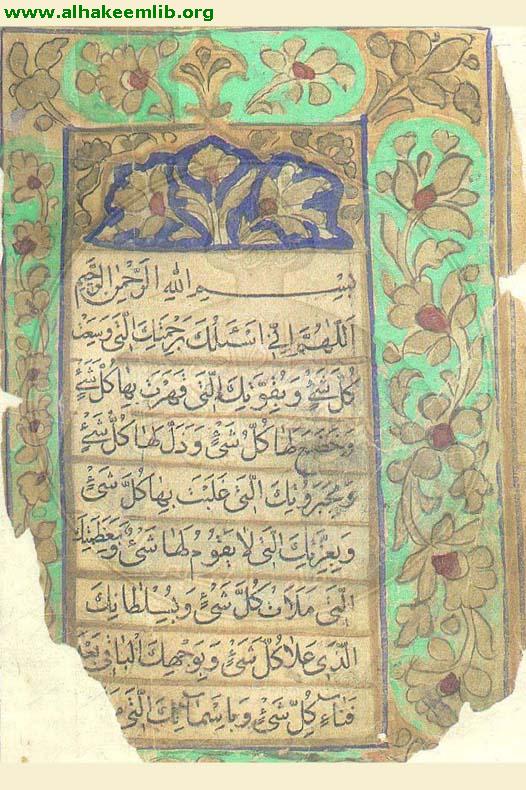 www.alhakeemlib.org
بسم الله الرحمن الرحيم
اللهم اني اسئلك برحمتك التي وسعت
كل شئ وبقوتك التي قهرت بها كل شئ
وخضع لها كل شئ وذل لها كل شئ
وبجبروتك التي غلبت بها كل شئ
وبعزتك التي لا يقوم لها شئ وبعظمتك
التي ملأت كل شئ وبسلطانك
الذي علا كل شئ وبوجهك الباقي بعد
فناء كل شئ وباسمائك التي